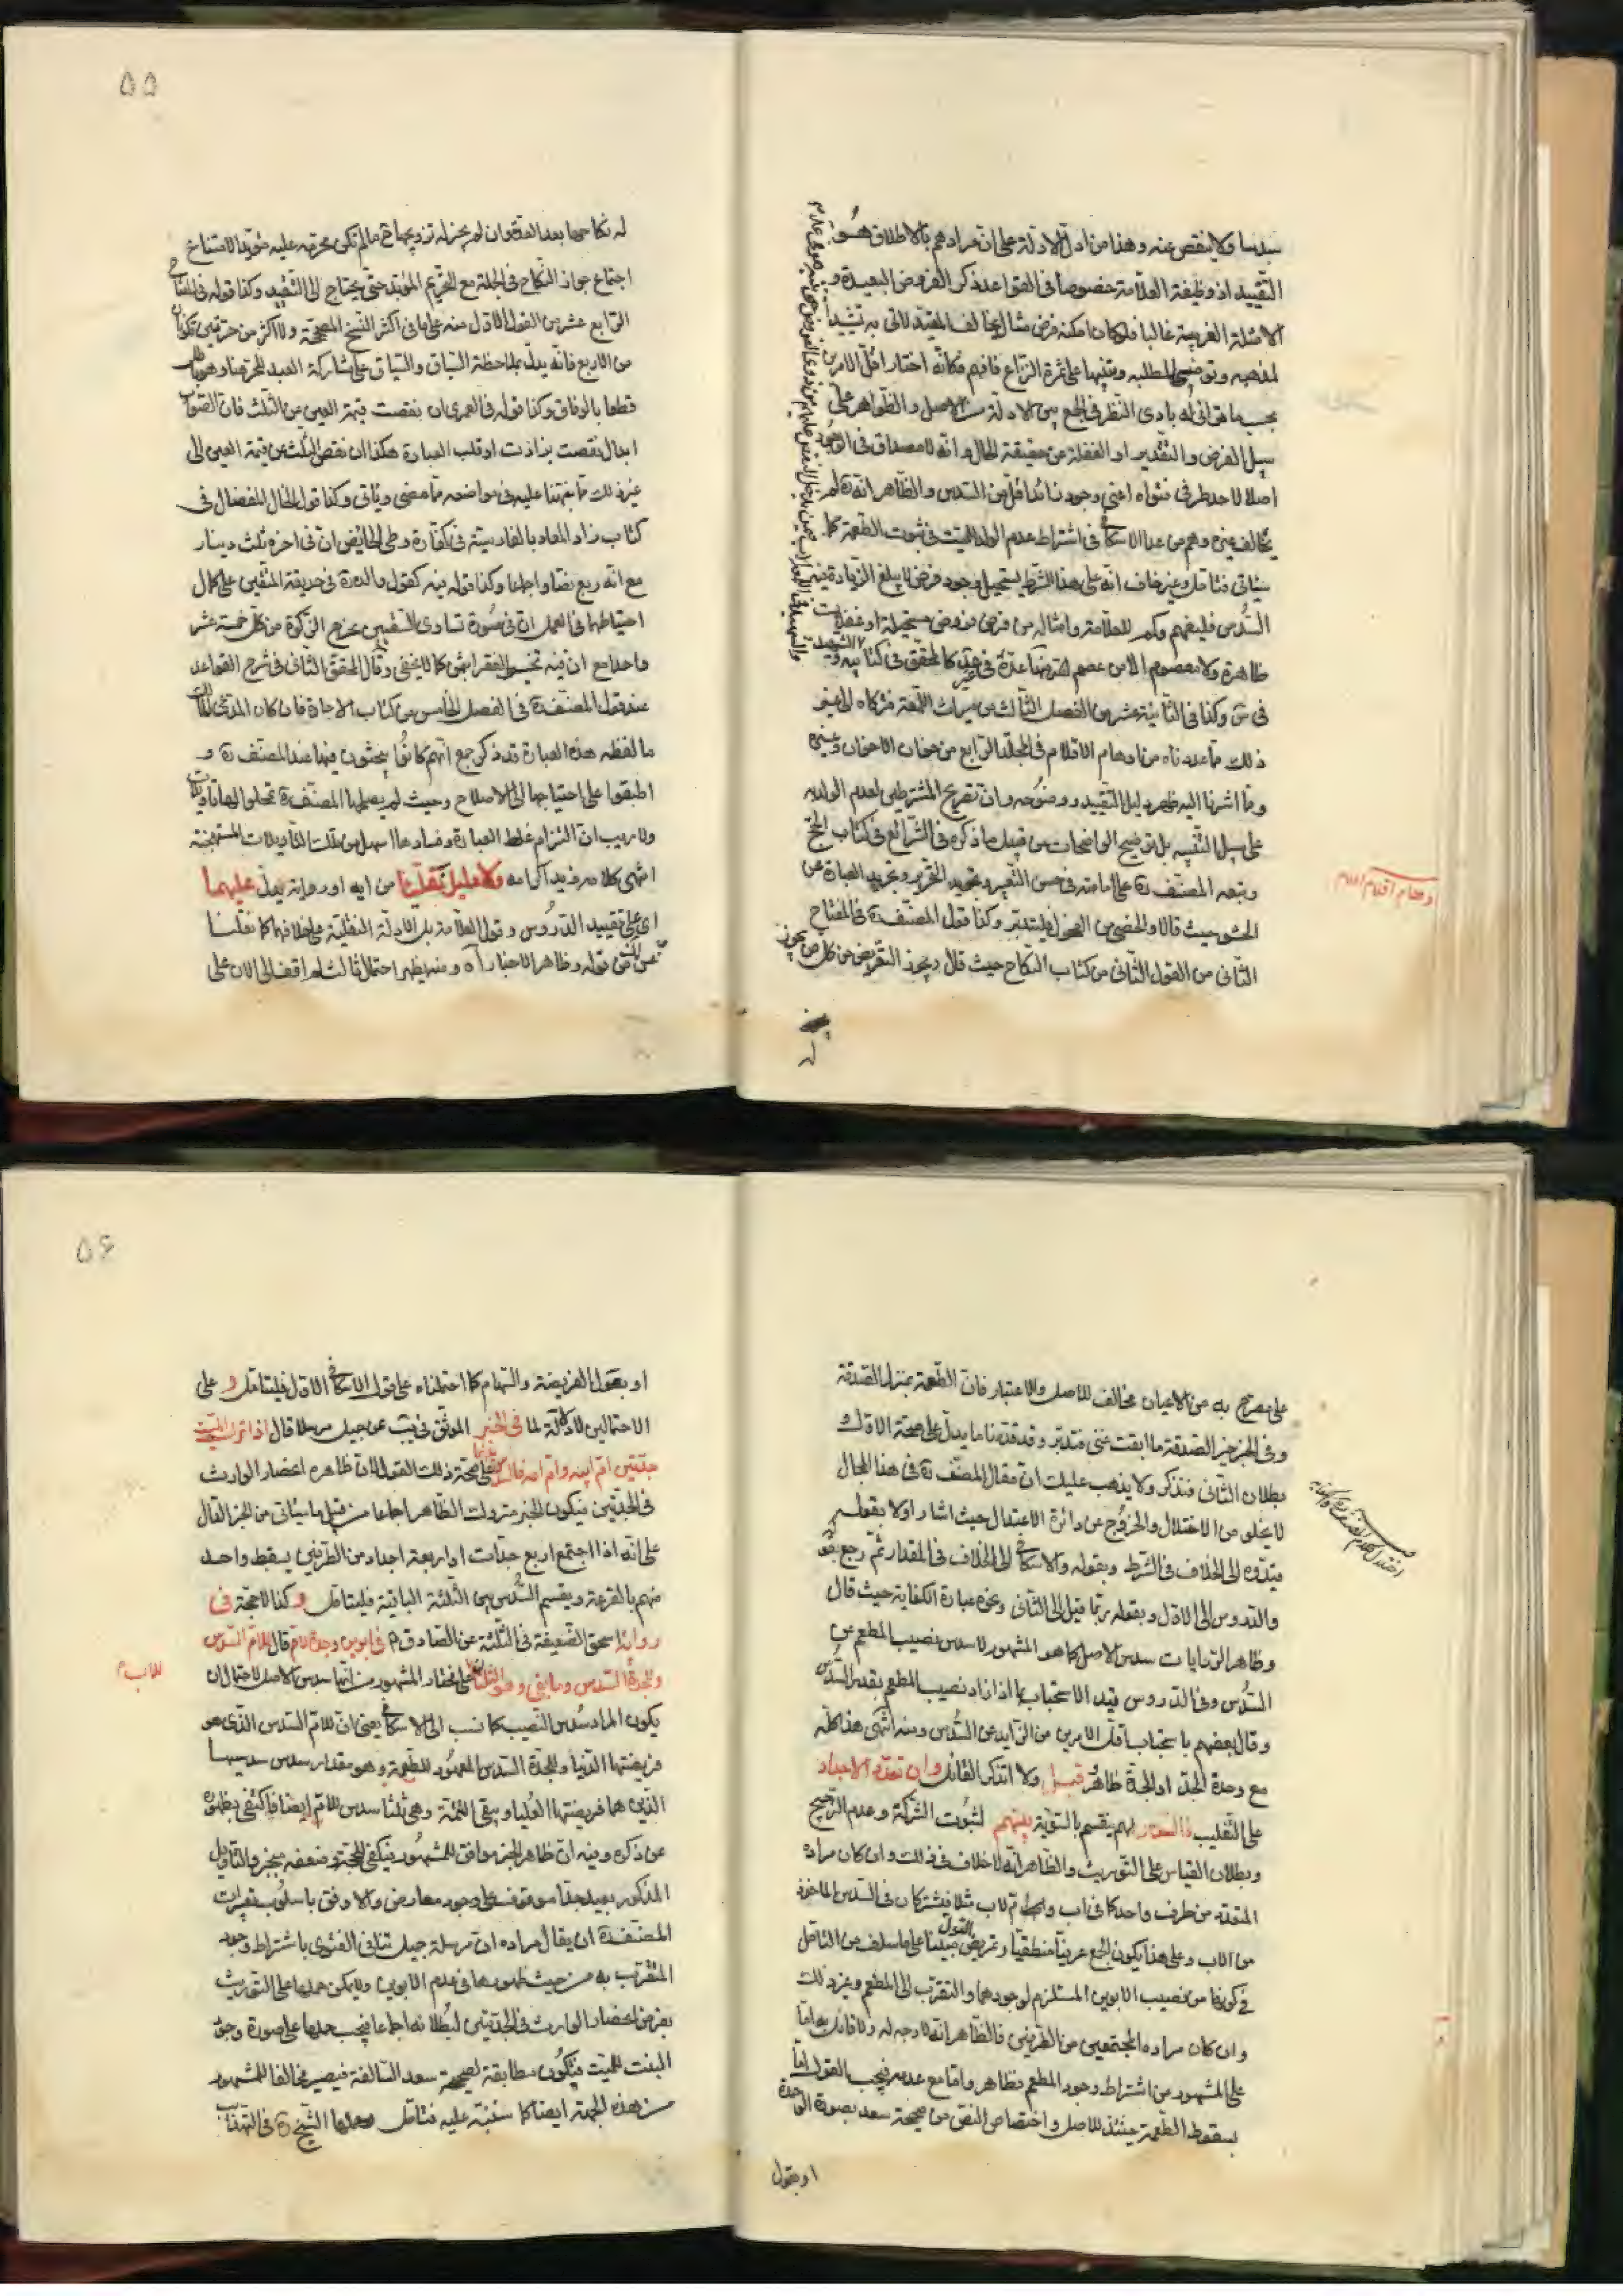 سدسا ولا ينقص عنه وهذا من ادل الادلة على ان مرادهم بالاطلاق هو
التقييد اذ وظيفة العلامة خصوصا في القواعد ذكر الفروض البعيدة و
الامثلة الغريبة غالبا فلو كان امكنه فرض مثال يخالف المقيد لاتى به تشييدا
لمذهبه وتوضيحا لمطلبه وتنبيها على ثمرة النزاع فافهم فكانه اختار اقل الامرين
بحسب ما تراءى له بادى النظر في الجمع بين الادلة من الاصل والظواهر على
سبيل الفرض والتقدير او الغفلة عن حقيقة الحال وانه لا مصداق في الوجود
اصلا لاحد طرفي فتواه اعنى وجود زائد اقل من السدس والظاهر انه ره لم
يخالف غيره وهم من عدا الاسكافي في اشتراط عدم الولد للميت في ثبوت الطعمة كما
سياتي فتامل وغير خاف انه على هذا الشرط يستحيل وجود فرض لا يبلغ الزيادة فيه
السدس فليفهم وكم للعلامة وامثاله من فرض فروض مستحيلة او غفلات
ظاهرة ولا معصوم الا من عصم الله كالمحقق في كتابيه و الشهيد
في س وكذا في الثانية عشر من الفصل الثالث من ميراث اللمعة فتركاه الى غير
ذلك مما عددناه من اوهام الاقلام في المجلد الرابع من خوان الاخوان وغيره
ومما اشرنا اليه ظهر دليل التقييد ووضوحه وان تصريح المشترطين لعدم الولد
على سبيل التنبيه بل توضيح الواضحات من قبيل ما ذكره في الشرائع في كتاب الحج
وتبعه المصنف ره على امامته في حسن التعبير وتجويد التحرير وتجريد العبارة عن
الحشو حيث قالا والخصى من الفحول فليتدبر وكذا قول المصنف ره في المفتاح
الثاني من القول الثاني من كتاب النكاح حيث قال ويجوز التعريض من كل من يجوز
له
اوهام اقلام اعلام
٥٥
له نكاحها بعد العدة وان لم يجز له تزويجها ح ما لم تكن محرمة عليه مؤبدا لامتناع
اجتماع جواز النكاح في الجملة مع التحريم المؤبد حتى يحتاج الى التقييد وكذا قوله في المفتاح
الرابع عشر من القول الاول منه على ما في اكثر النسخ المصححة ولا اكثر من حرتين تكونان
من الاربع فانه يدل بملاحظة السباق والسياق على مشاركة العبد للحر هنا وهو باطل
قطعا بالوفاق وكذا قوله في العمرى ان نقصت قيمة العين عن الثلث فان الصواب
ابدال نقصت بزادت او قلب العبارة هكذا ان نقص الثلث عن قيمة العين الى
غير ذلك مما نبهنا عليه في مواضعه مما مضى وياتي وكذا قول الخال المفضال في
كتاب زاد المعاد بالفارسية في كفارة وطى الحائض ان في اخره ثلث دينار
مع انه ربع نصا واجماعا وكذا قوله فيه كقول والده ره في حديقة المتقين على كمال
احتياطهما في العمل ان في صورة تساوى السقيين يخرج الزكوة من كل خمسة عشر
واحدا مع ان فيه تخسير الفقراء بشئ كما لا يخفى وقال المحقق الثاني في شرح القواعد
عند قول المصنف ره في الفصل الخامس من كتاب الاجارة فان كان المدعى المالك
ما لفظه هذه العبارة قد ذكر جمع انهم كانوا يبحثون فيها عند المصنف ره و
اطبقوا على احتياجها الى الاصلاح وحيث لم يصلحها المصنف ره تمحلوا لها تاويلات
ولا ريب ان التزام غلط العبارة وفسادها اسهل من تلك التاويلات المستهجنة
انتهى كلامه زيد اكرامه ولا دليل نقليا من اية او رواية يدل عليهما
اى على تقييد الدروس وقول العلامة بل الادلة النقلية على خلافهما كما نقلنا
عن لك من قوله وظاهر الاخبار اه ومنه يظهر احتمال ثالث لم اقف الى الان على
على مصرح به من الاعيان مخالف للاصل والاعتبار فان الطعمة بمنزلة الصدقة
وفي الخبر خير الصدقة ما ابقت غنى فتدبر وقد قدمنا ما يدل على صحة الاول و
بطلان الثاني فتذكر ولا يذهب عليك ان مقال المصنف ره في هذا المجال
لا يخلو من الاختلال والخروج عن دائرة الاعتدال حيث اشار اولا بقوله
قيدوه الى الخلاف في الشرط وبقوله والاسكافي الى الخلاف في المقدار ثم رجع بقوله
والدروس الى الاول وبقوله ربما قيل الى الثاني ونحوه عبارة الكفاية حيث قال
وظاهر الروايات سدس الاصل كما هو المشهور لا سدس نصيب المطعم عن
السدس وفي الدروس قيد الاستحباب بما اذا زاد نصيب المطعم بقدر السدس
وقال بعضهم باستحباب اقل الامرين من الزايد عن السدس ومنه انتهى هذا كله
مع وحدة الجد او الجدة ظاهر قيل ولا اتذكر القائل وان تعدد الاجداد
على التغليب فالسدس لهم يقسم بالسوية بينهم لثبوت الشركة وعدم الترجيح
وبطلان القياس على التوريث والظاهر انه لا خلاف في ذلك وان كان مراده
المتعدد من طرف واحد كما في اب وام لاب مثلا فيشتركان في السدس الماخوذ
من الاب وعلى هذا يكون الجمع عرفيا منطقيا وتعريض القول مبنيا على ما سلف من التامل
في كونها من نصيب الابوين المستلزم لوجودهما والتقرب الى المطعم وغير ذلك
وان كان مراده المجتمعين من الطرفين فالظاهر انه لا وجه له ولا قائل به اما
على المشهور من اشتراط وجود المطعم فظاهر واما مع عدمه فيجب القول اما
بسقوط الطعمة حينئذ للاصل واختصاص النص من صحيحة سعد بصورة الوحدة
او بقول
٥٦
او بقول الفريضة والسهام كما احتملناه على قول الاسكافي الاول فليتامل و على
الاحتمالين لا دلالة لما في الخبر الموثق في يب عن جميل مرسلا قال اذا ترك الميت
جدتين ام ابيه وام امه فالسدس بينهما على صحة ذلك القول لان ظاهره انحصار الوارث
في الجدتين فيكون الخبر متروك الظاهر اجماعا من قبيل ما سياتي من الخبر الدال
على انه اذا اجتمع اربع جدات او اربعة اجداد من الطرفين يسقط واحد
منهم بالقرعة ويقسم السدس بين الثلثة الباقية فليتامل وكذا لا حجة في
رواية اسحق الضعيفة في الثلثة عن الصادق ع في ابوين وجدة لام قال للام السدس
وللجدة السدس وما بقى وهو الثلثان على مختار المشهور من انها سدس الاصل لاحتمال ان
للاب
يكون المراد سدس النصيب كما نسب الى الاسكافي يعنى ان للام السدس الذى هو
فريضتها الدنيا وللجدة السدس المعهود للطعمة وهو مقدار سدس سدسيها
الذين هما فريضتها العليا ويبقى التتمة وهى ثلثا سدس للام ايضا فاكتفى بظهوره
عن ذكره وفيه ان ظاهر الخبر موافق للمشهور فيكفى للحجة وضعفه منجبر والتاويل
المذكور بعيد جدا موقوف على وجود معارض والاوفق باسلوب تعبيرات
المصنف ره ان يقال مراده ان مرسلة جميل تنافى الفتوى باشتراط وجود
المتقرب به من حيث ظهورها في عدم الابوين ولا يمكن حملها على التوريث
بفرض انحصار الوارث في الجدتين لبطلانه اجماعا فيجب حملها على صورة وجود
البنت للميت فيكون مطابقة لصحيحة سعد السالفة فيصير مخالفا للمشهور
من هذه الجهة ايضا كما سننبه عليه فتامل وحملها الشيخ ره في التهذيب